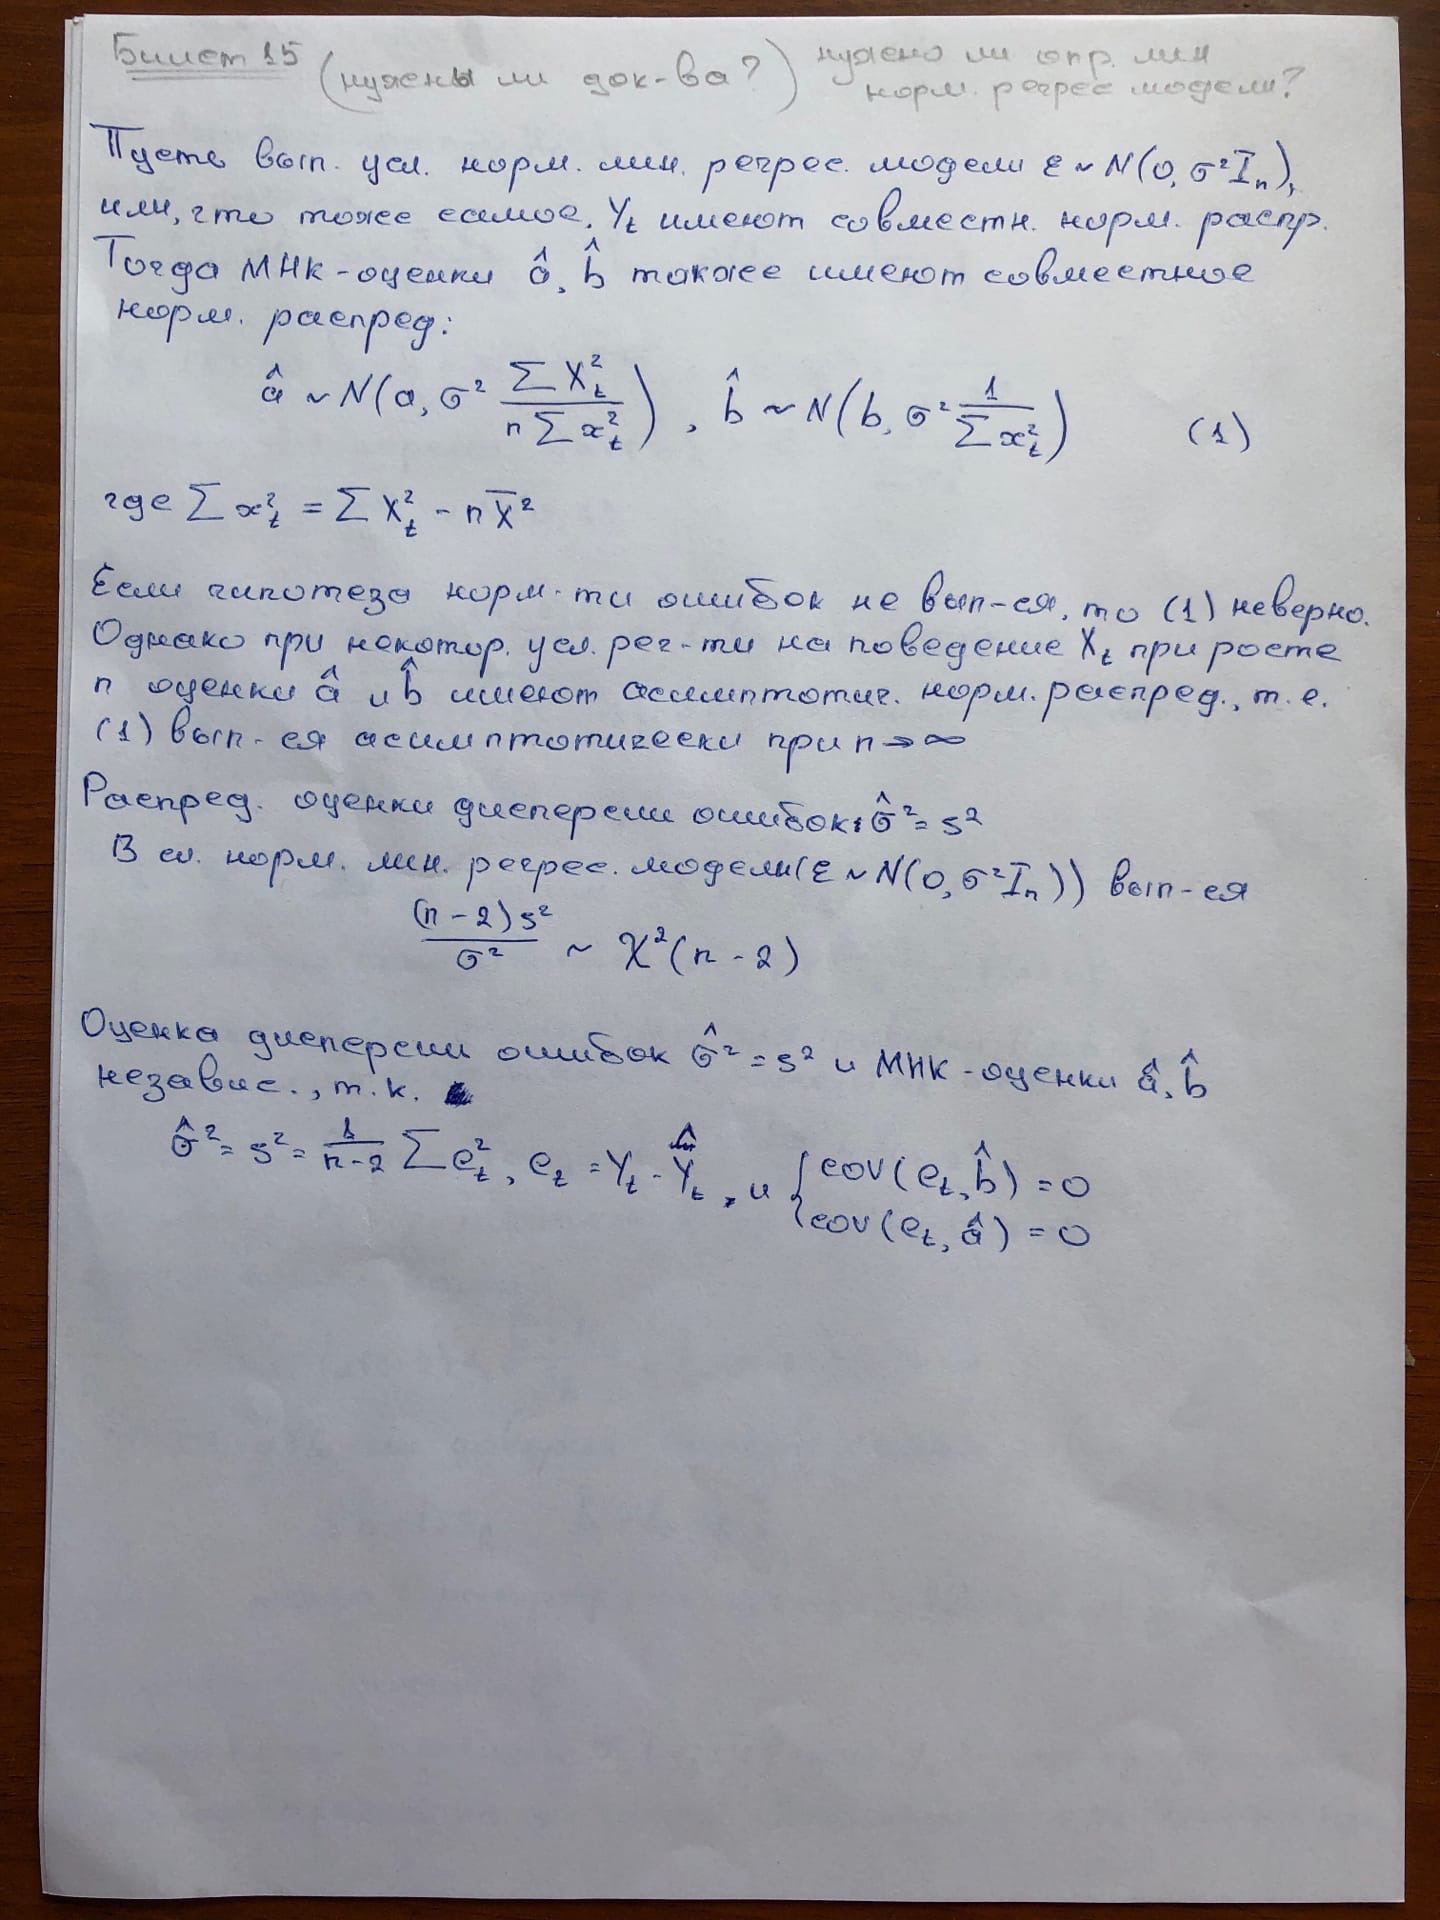 Билет 15 (нужны ли док-ва?) нужно ли опр. лин
норм. регрес модели?
Пусть вып. усл. норм. лин. регрес. модели ε ~ N(0, σ²Iₙ),
или, что тоже самое, Yₜ имеют совместн. норм. распр.
Тогда МНК-оценки â, b̂ также имеют совместное
норм. распред:
â ~ N(a, σ² ∑Xₜ² / n∑xₜ²), b̂ ~ N(b, σ² 1 / ∑xₜ²) (1)
где ∑xₜ² = ∑Xₜ² - nX̄²
Если гипотеза норм-ти ошибок не вып-ся, то (1) неверно.
Однако при некотор. усл. рег-ти на поведение Xₜ при росте
n оценки â и b̂ имеют асимптотич. норм. распред., т.е.
(1) вып-ся асимптотически при n→∞
Распред. оценки дисперсии ошибок: σ̂² = s²
В сл. норм. лин. регрес. модели (ε ~ N(0, σ²Iₙ)) вып-ся
(n-2)s² / σ² ~ χ²(n-2)
Оценка дисперсии ошибок σ̂² = s² и МНК-оценки â, b̂
независ., т.к.
σ̂² = s² = 1/(n-2) ∑eₜ², eₜ = Yₜ - Ŷₜ, и { cov(eₜ, b̂) = 0
cov(eₜ, â) = 0